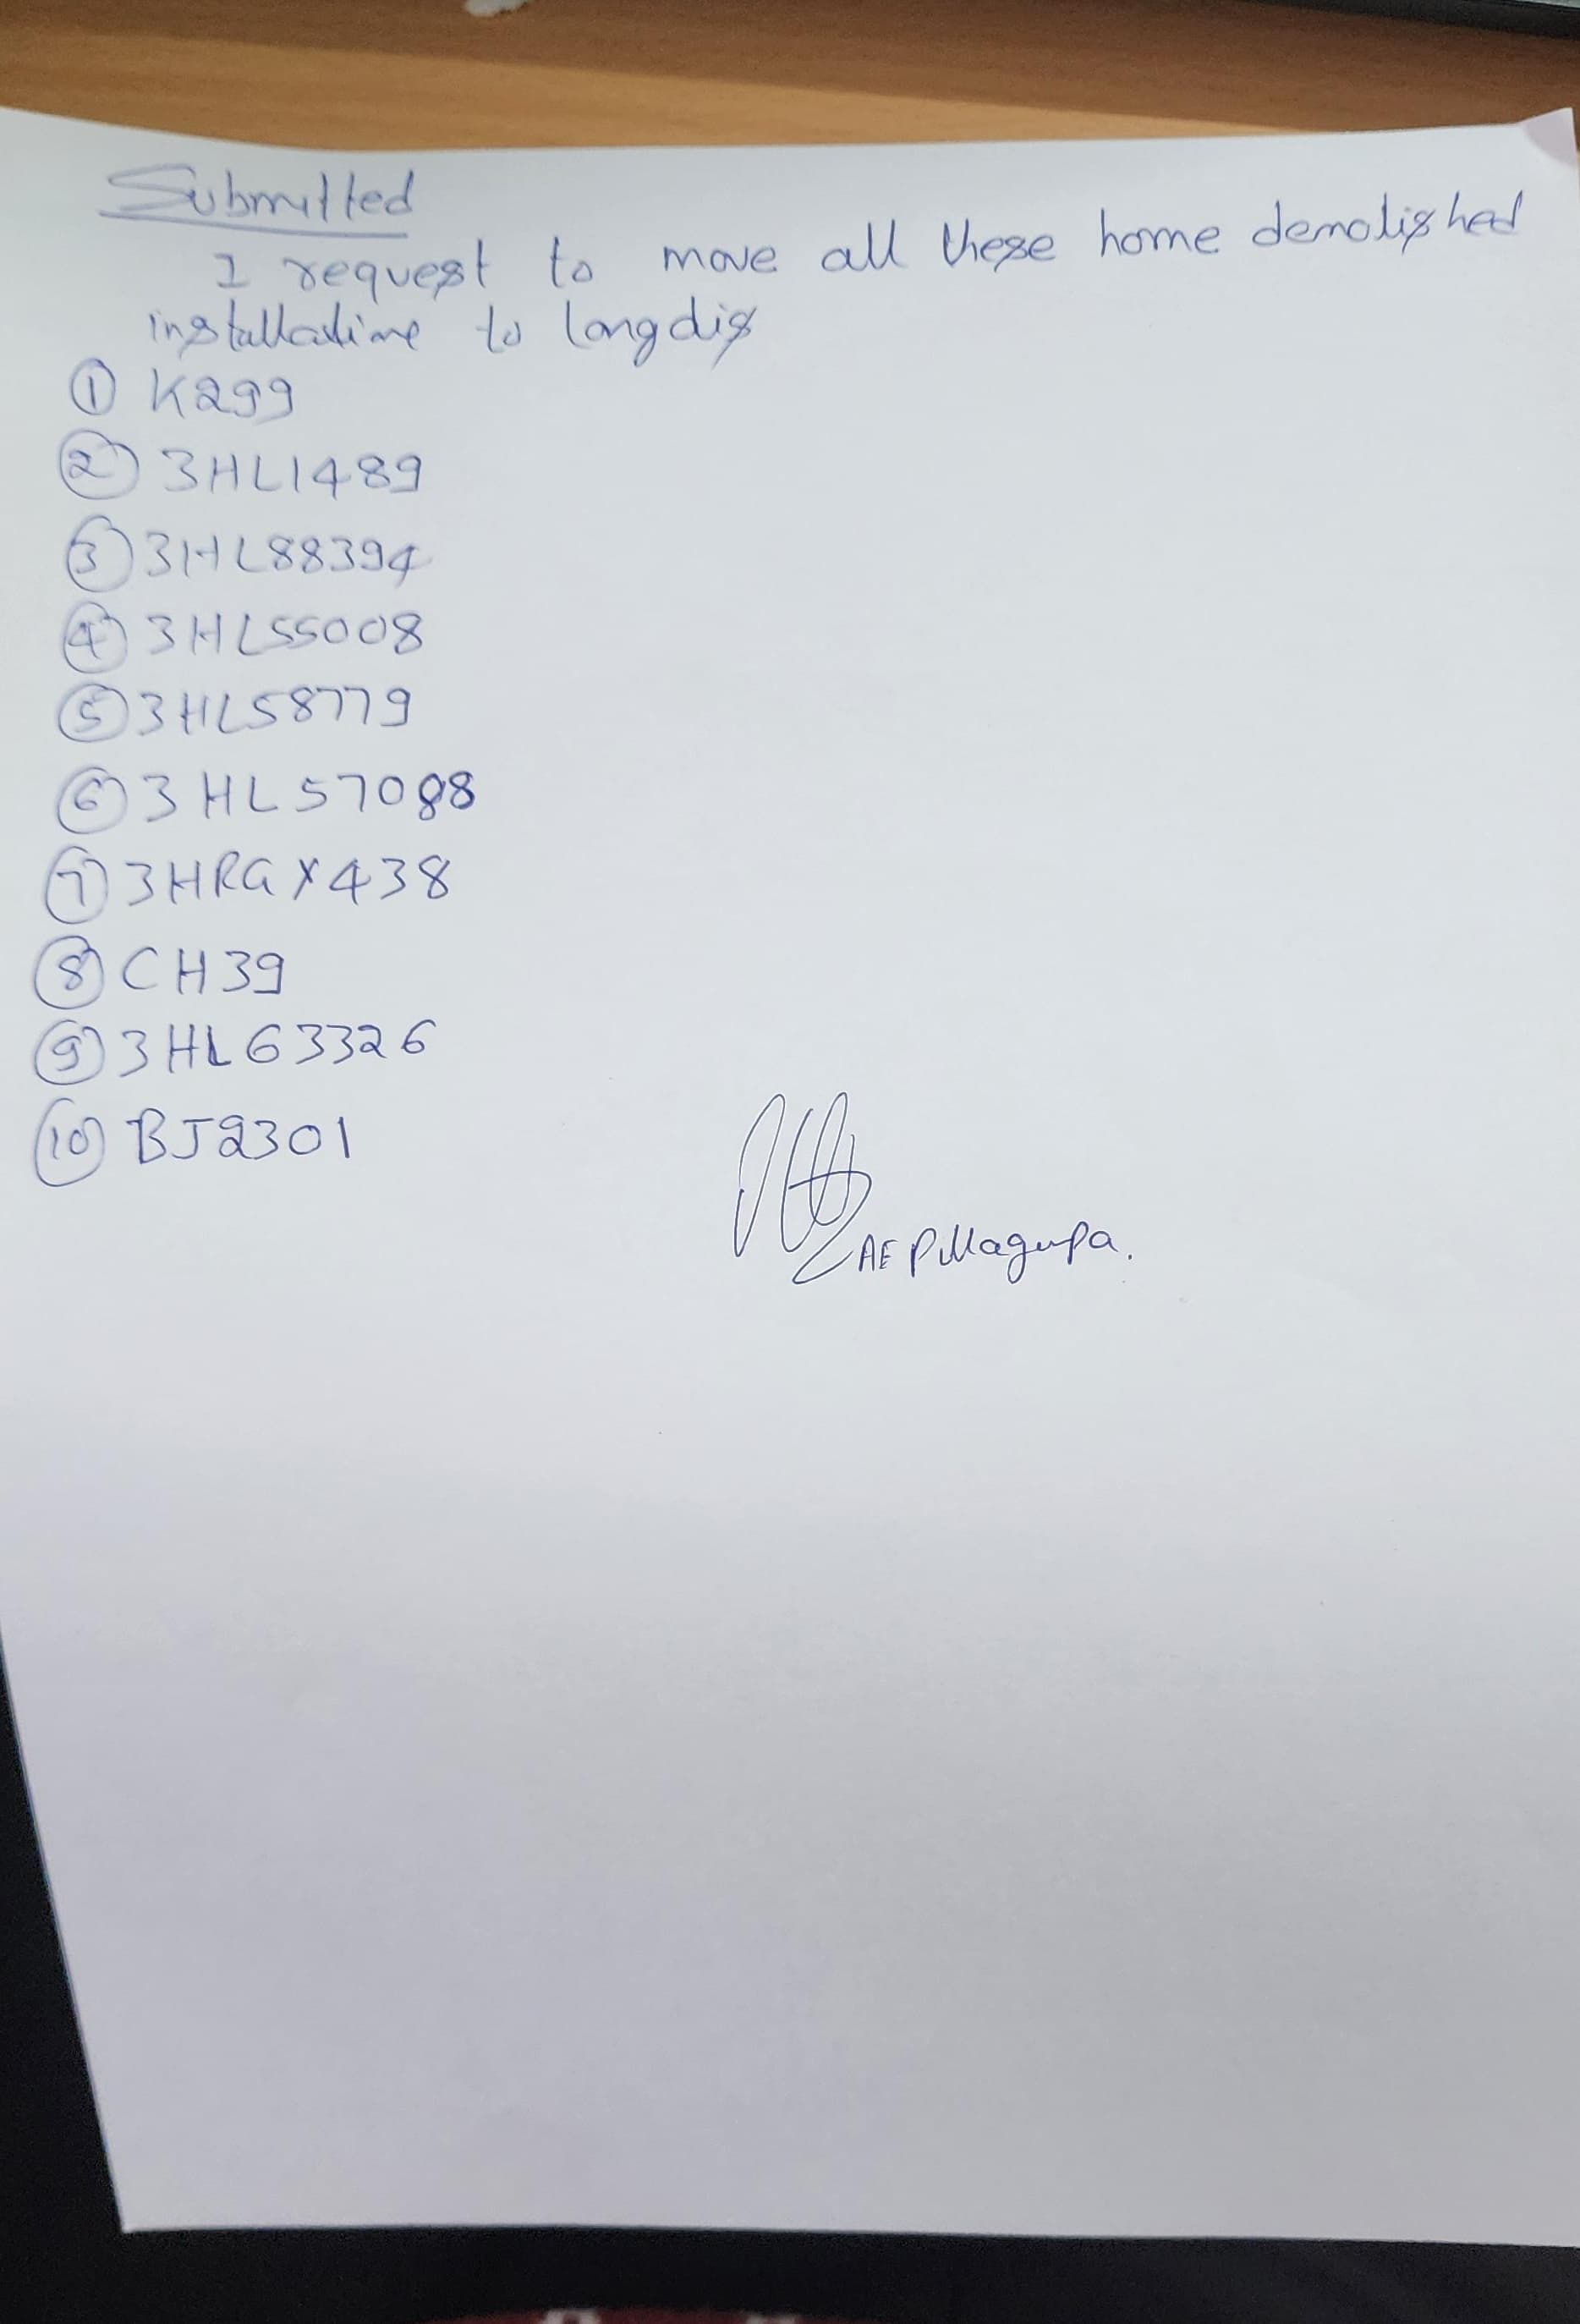 Submitted
I request to move all these home demolished
installations to longdis
① K299
② 3HL1489
③ 3HL88394
④ 3HL55008
⑤ 3HL58779
⑥ 3HL57088
⑦ 3HRGX438
⑧ CH39
⑨ 3HL63326
⑩ BJ2301
AE Pillagumpa.